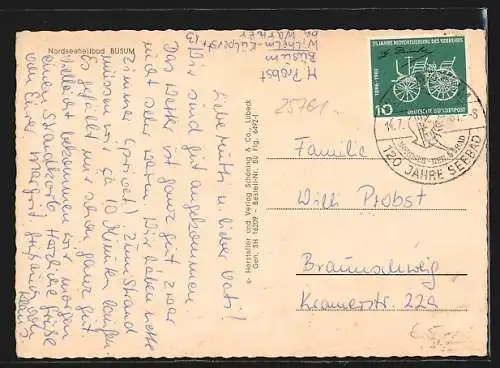 Nordseeheilbad BÜSUM
M. Probst
Büsum
Wilhelm-Külperstr.
bei Warner
Liebe Mutti u. lieber Vati!
Wir sind gut angekommen.
Das Wetter ist ganz gut zwar
nicht sehr warm. Wir haben nette
Zimmer (privat) zum Strand
müssen wir ca 10 Minuten laufen.
Es gefällt mir schon ganz gut.
Vielleicht bekommen wir morgen
einen Strandkorb. Herzliche Grüße
von Eurer Margrit
Klaus
Hersteller und Verlag Schöning & Co., Lübeck
Gen. SH 16209 - Bestell-Nr. Bü Flg. 6492-1
25761
75 JAHRE MOTORISIERUNG DES VERKEHRS
1886-1961
10
DEUTSCHE BUNDESPOST
14.7.
NORDSEE-HEILBAD
120 JAHRE SEEBAD
Familie
Willi Probst
Braunschweig
Kramerstr. 22a